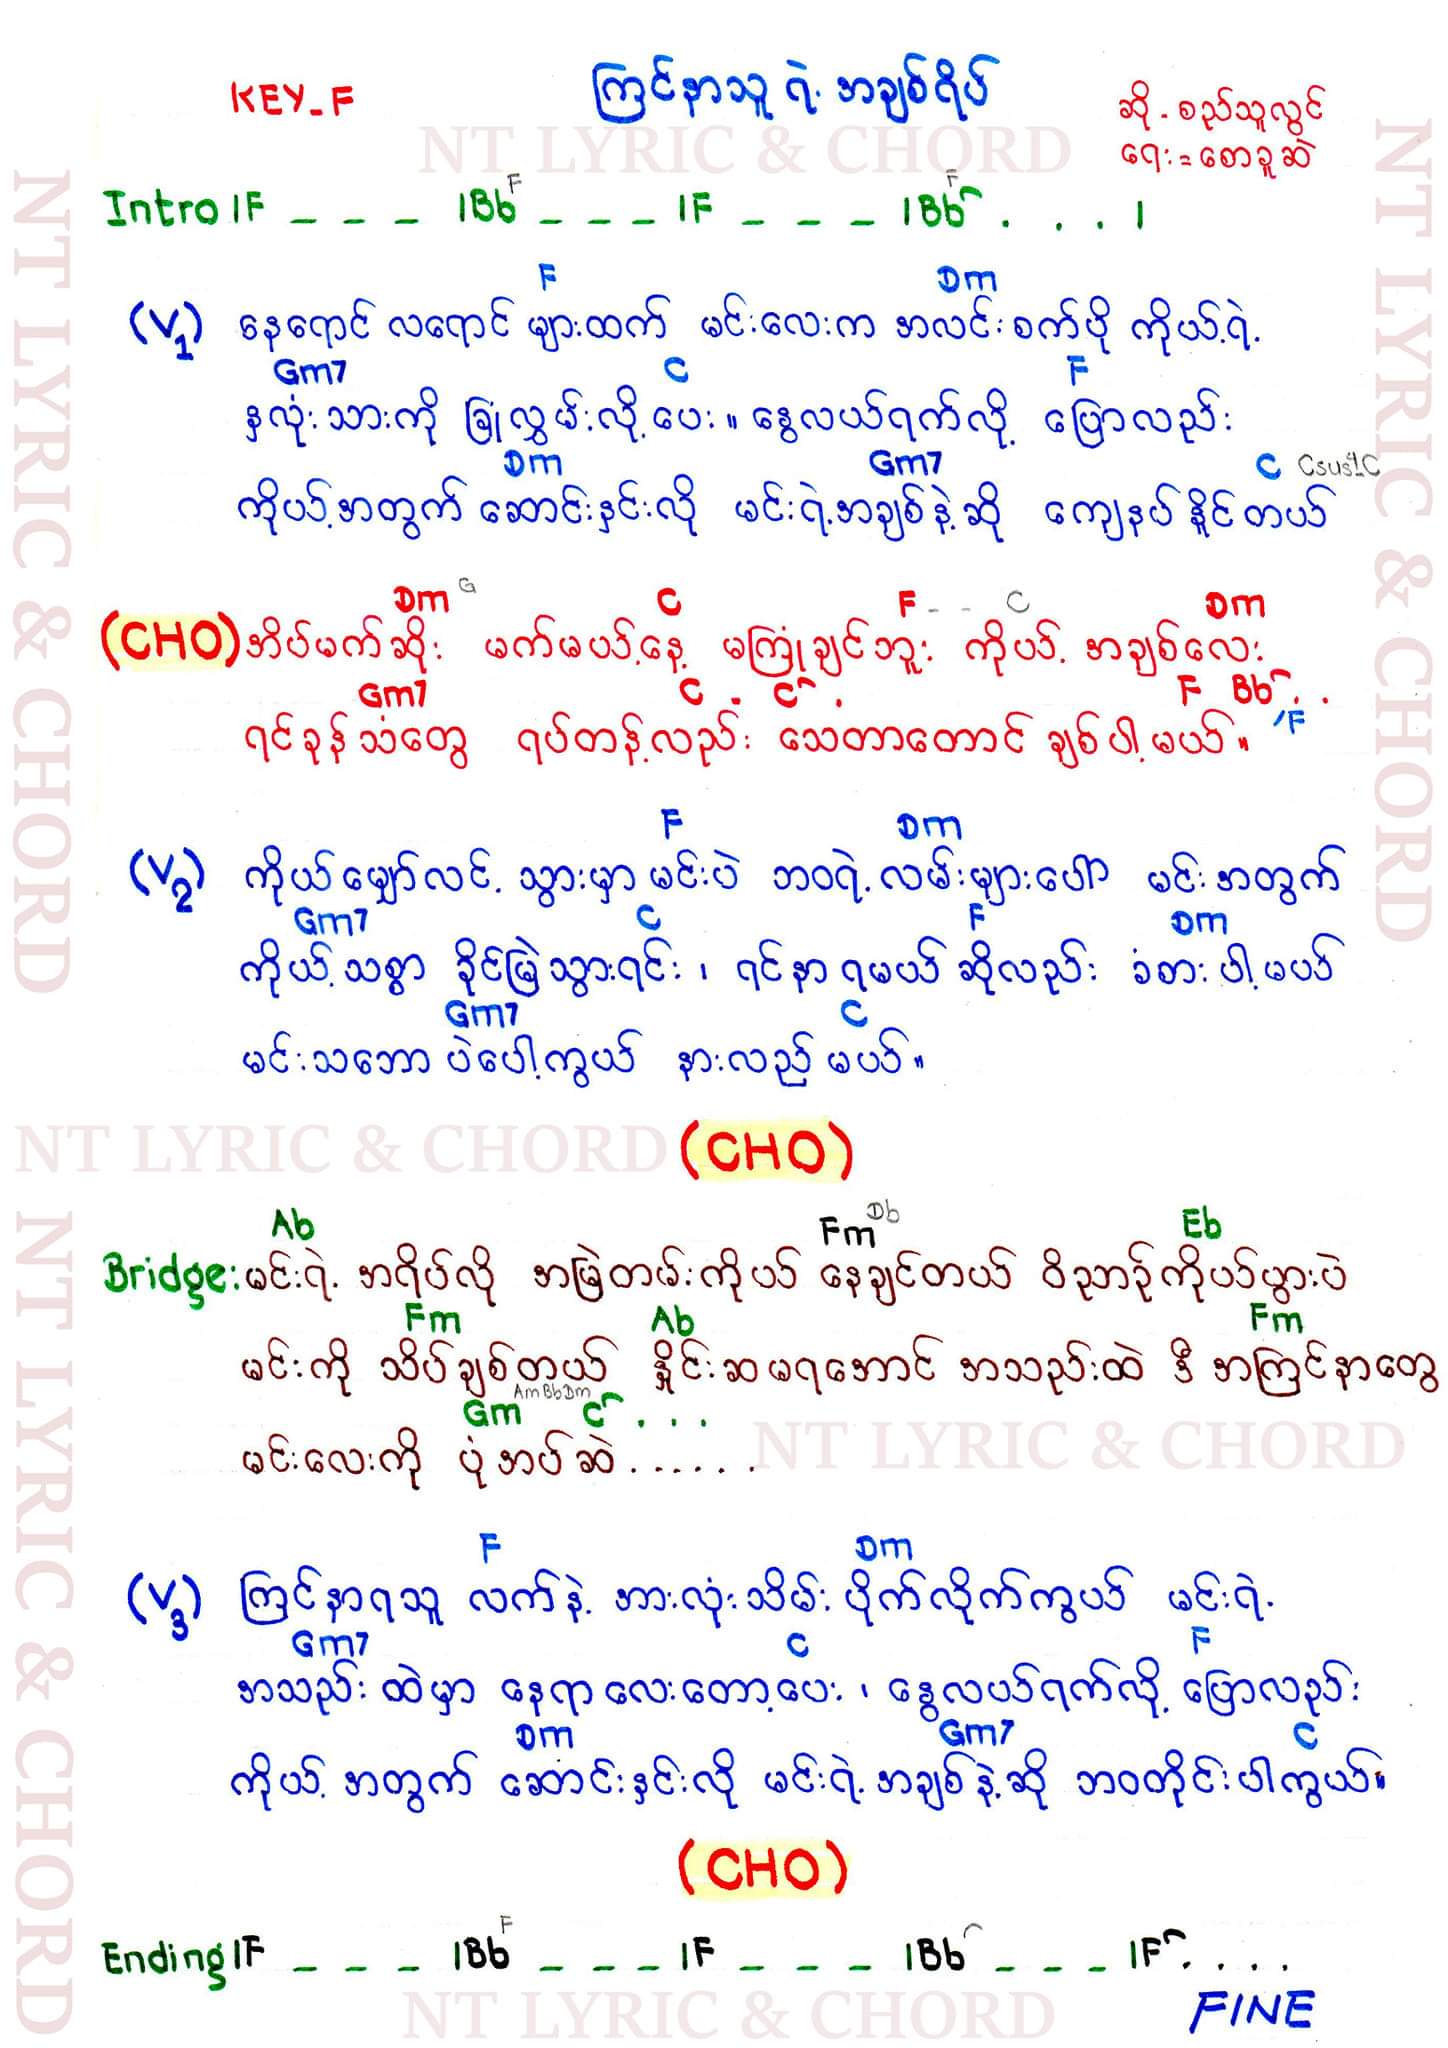 KEY-F
ကြင်နာသူ ရဲ့ အချစ်ရိပ်
ဆို - စည်သူလွင်
ရေး = စောခူဆဲ
NT LYRIC & CHORD
Intro |F _ _ _ |Bb F _ _ _ |F _ _ _ |Bb F . . . |
F Dm
(V1) နေရောင် လရောင် များထက် မင်းလေးက အလင်းစက်ပို ကိုယ့်ရဲ့
Gm7 C F
နှလုံးသားကို ခြုံလွှမ်းလို့ပေး။ နွေလယ်ရက်လို့ ပြောလည်း
Dm Gm7 C Csus4 C
ကိုယ့်အတွက် ဆောင်းနှင်းလို မင်းရဲ့အချစ်နဲ့ဆို ကျေနပ်နိူင်တယ်
Dm G C F - - C Dm
(CHO) အိပ်မက်ဆိုး မက်မယ့်နေ့ မကြုံချင်ဘူး ကိုယ့် အချစ်လေး
Gm7 C . C . F Bb . .
ရင်ခုန်သံတွေ ရပ်တန့်လည်း သေတာတောင် ချစ်ပါ့မယ်။ /F
F Dm
(V2) ကိုယ်မျှော်လင့် သွားမှာ မင်းပဲ ဘဝရဲ့လမ်းများပေါ် မင်းအတွက်
Gm7 C F Dm
ကိုယ့်သစ္စာ ခိုင်မြဲသွားရင်း ၊ ရင်နာရမယ်ဆိုလည်း ခံစားပါ့မယ်
Gm7 C
မင်းသဘော ပဲပေါ့ကွယ် နားလည်မယ်။
NT LYRIC & CHORD
(CHO)
Ab Fm Db Eb
Bridge: မင်းရဲ့ အရိပ်လို အမြဲတမ်းကိုယ် နေချင်တယ် ဝိညာဉ်ကိုယ်ပွားပဲ
Fm Ab Fm
မင်းကို သိပ်ချစ်တယ် နှိုင်းဆမရအောင် အသည်းထဲ ဒီ အကြင်နာတွေ
Gm Am Bb Dm C . . .
မင်းလေးကို ပုံအပ်ဆဲ......
NT LYRIC & CHORD
F Dm
(V3) ကြင်နာရသူ လက်နဲ့ အားလုံးသိမ်း ပိုက်လိုက်ကွယ် မင်းရဲ့
Gm7 C F
အသည်းထဲမှာ နေရာလေးတော့ပေး ၊ နွေလယ်ရက်လို့ ပြောလည်း
Dm Gm7 C
ကိုယ့်အတွက် ဆောင်းနှင်းလို မင်းရဲ့အချစ်နဲ့ဆို ဘဝတိုင်းပါကွယ်။
(CHO)
Ending |F _ _ _ |Bb F _ _ _ |F _ _ _ |Bb _ _ _ |F . . . .
FINE
NT LYRIC & CHORD
NT LYRIC & CHORD
NT LYRIC & CHORD
NT LYRIC & CHORD